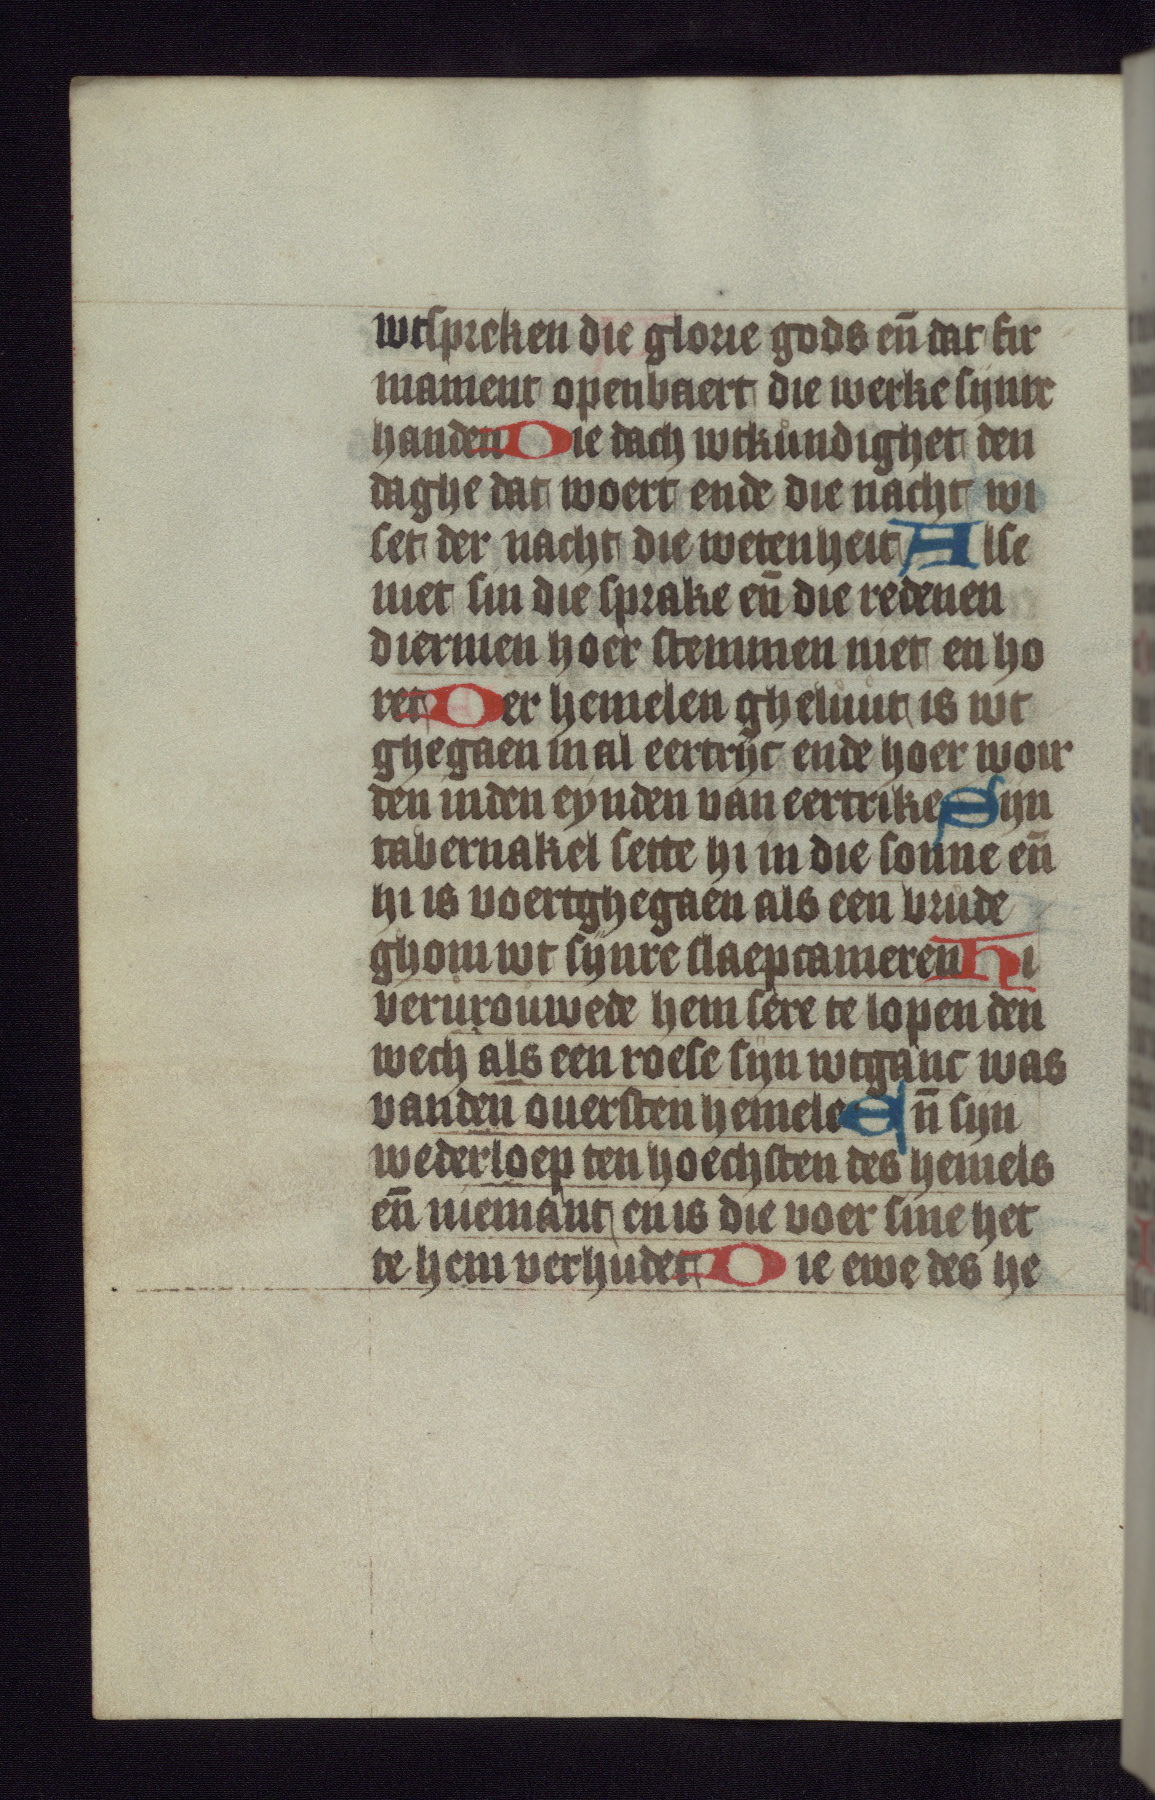 wtspreken die glorie gods en̄ dat fir
mament openbaert die werke sijnre
handen Die dach wtkundighet den
daghe dat woert ende die nacht wi
set der nacht die wetenheit Alse
niet sin die sprake en̄ die redenen
diermen hoer stemmen niet en ho
ret Der hemelen gheluut is wt
ghegaen in al eertrijc ende hoer woir
den inden eynden van eertrike Sijn
tabernakel sette hi in die sonne en̄
hi is voertghegaen als een brude
ghom wt sijnre slaepcameren Hi
verurouwede hem sere te lopen den
wech als een roese sijn wtganc was
vanden ouersten hemele En̄ sijn
wederloep ten hoechsten des hemels
en̄ niemant en is die voer sine het
te hem verhudet Die ewe des he